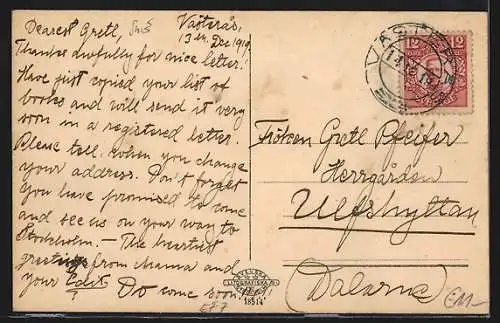 Västerås,
13 th Dec 1919
Dearest Gretl,
Thanks awfully for nice letter!
Have just copied your list of
books and will send it very
soon in a registered letter.
Please tell, when you change
your address. Don't forget
you have promised to come
and see us on your way to
Stockholm. — The heartiest
greetings from mama and
your Edit. Do come soon!
VÄSTERÅS
12 12
Fröken Gretl Pfeifer
Herrgården
Ulfshyttan
(Dalarna)
18514